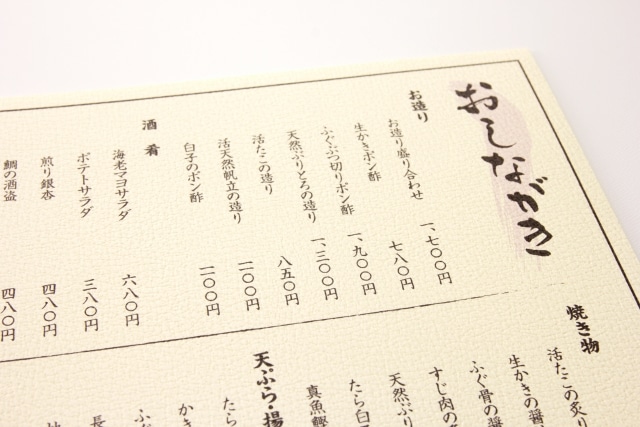 おしながき
お造り
お造り盛り合わせ 一、七〇〇円
生かきポン酢 七八〇円
ふぐぶつ切りポン酢 一、九〇〇円
天然ぶりとろの造り 一、三〇〇円
活たこの造り 八五〇円
活天然帆立の造り
白子のポン酢
酒肴
海老マヨサラダ 六八〇円
ポテトサラダ 三八〇円
煎り銀杏 四八〇円
鯛の酒盗 四八〇円
焼き物
活たこの炙り
生かきの醤
ふぐ骨の醤
すじ肉の
天然ぶり
たら白
真魚鰹
天ぷら・揚
たら
かき
ふ
長